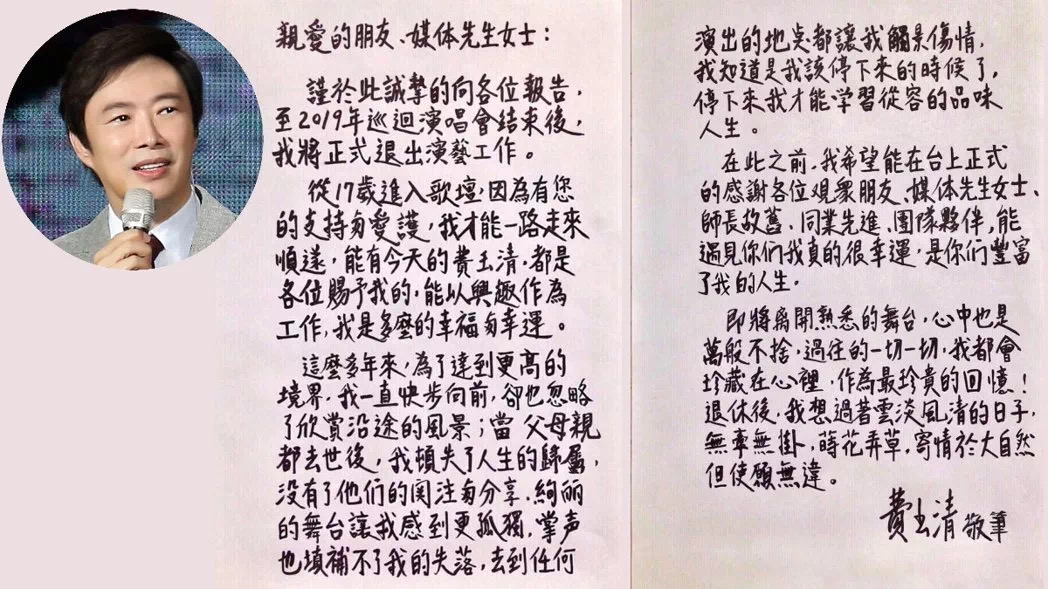 親愛的朋友、媒体先生女士：
謹於此誠摯的向各位報告，
至2019年巡迴演唱會結束後，
我將正式退出演藝工作。
從17歲進入歌壇，因為有您
的支持与愛護，我才能一路走來
順遂，能有今天的費玉清，都是
各位賜予我的，能以興趣作為
工作，我是多麼的幸福与幸運。
這麼多年來，為了達到更高的
境界，我一直快步向前，卻也忽略
了欣賞沿途的風景；當父母親
都去世後，我頓失了人生的歸屬，
没有了他們的関注与分享，絢丽
的舞台讓我感到更孤獨，掌声
也填補不了我的失落，去到任何
演出的地点都讓我觸景傷情，
我知道是我該停下來的時候了，
停下來我才能学習從容的品味
人生。
在此之前，我希望能在台上正式
的感謝各位观眾朋友、媒体先生女士、
師長故舊、同業先進、团隊夥伴，能
遇見你們我真的很幸運，是你們豐富
了我的人生.
即將离開熟悉的舞台，心中也是
萬般不捨，過往的一切一切，我都會
珍藏在心裡，作為最珍貴的回憶！
退休後，我想過著雲淡風清的日子，
無牽無掛，蒔花弄草，寄情於大自然
但使願無違。
費玉清 敬筆